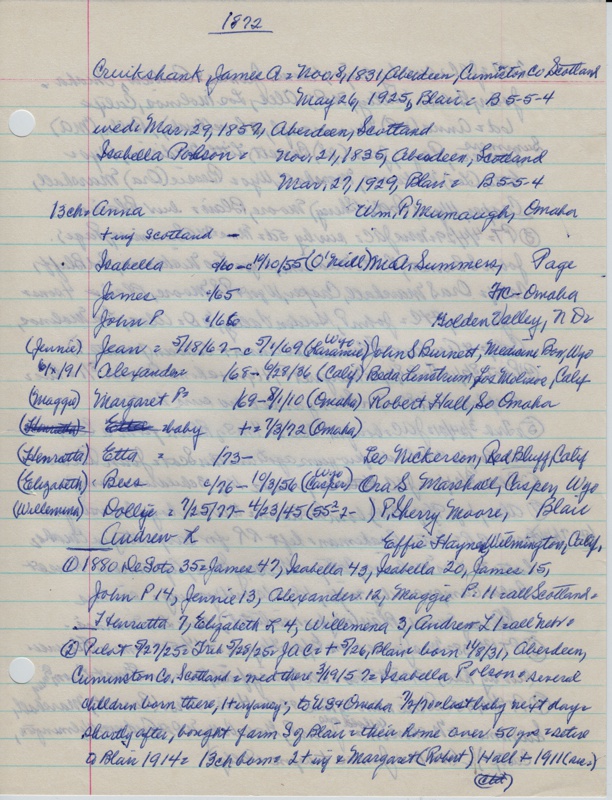 1872
Cruikshank, James A = Nov. 8, 1831, Aberdeen, Cumiston Co, Scotland
May 26, 1925, Blair = B 5-5-4
wed = Mar. 29, 1859, Aberdeen, Scotland
Isabella Polson = Nov. 21, 1835, Aberdeen, Scotland
Mar. 27, 1929, Blair = B 5-5-4
13ch = Anna Wm. P. Mumaugh, Omaha
+ inj Scotland -
Isabella c/60 - c 10/10/55 (O'Neill) M.A. Summers, Page
James c/65 Fr C - Omaha
John P. c/66 Golden Valley, N D =
(Jennie) Jean = 5/18/67 - c 5/4/69 (Laramie Wyo) John S Burnett, Medicine Bow, Wyo
Alexander /68 - 6/28/36 (Calif) Beda Linstrum, Los Molinos, Calif
(Maggie) Margaret P = /69 - 8/1/10 (Omaha) Robert Hall, So Omaha
(Henrietta) Etta = baby + = 7/3/72 (Omaha)
(Henratta) Etta = /73 - Leo Nickerson, Red Bluff, Calif
(Elizabeth) = Bess c/76 - 10/3/56 (Casper Wyo) Ora S. Marshall, Casper, Wyo
(Willemena) Dollye = 7/25/77 - 4/23/45 (55-2-2- ) P. Sherry Moore, Blair
Andrew L Effie Hayne, Wilmington, Calif,
① 1880 DeSoto 35 = James 47, Isabella 43, Isabella 20, James 15,
John P 14, Jennie 13, Alexander 12, Maggie P. 11 = all Scotland =
Henratta 7, Elizabeth L 4, Willemena 3, Andrew L 1 = all Neb =
② Pilot 5/27/25 = Trib 5/28/25 = JAC = + 5/26, Blair = born 11/8/31, Aberdeen,
Cuminston Co, Scotland = wed there 3/19/57 = Isabella Polson = several
children born there, + infancy; to US + Omaha = lost baby next day =
shortly after, bought farm S of Blair = their home over 50 yrs = retire
to Blair 1914 = 13ch born = 2 + inj = Margaret (Robert) Hall + 1911 (ac.)